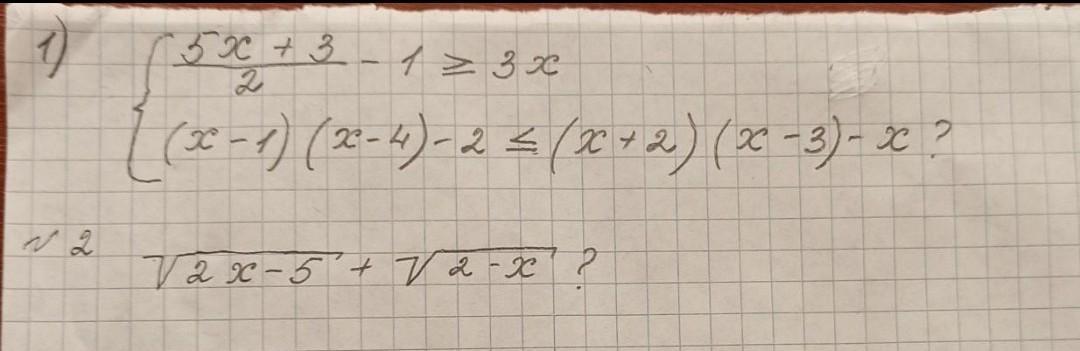 1) { (5x + 3)/2 - 1 ≥ 3x
(x - 1)(x - 4) - 2 ≤ (x + 2)(x - 3) - x ?
№ 2 √(2x - 5) + √(2 - x) ?